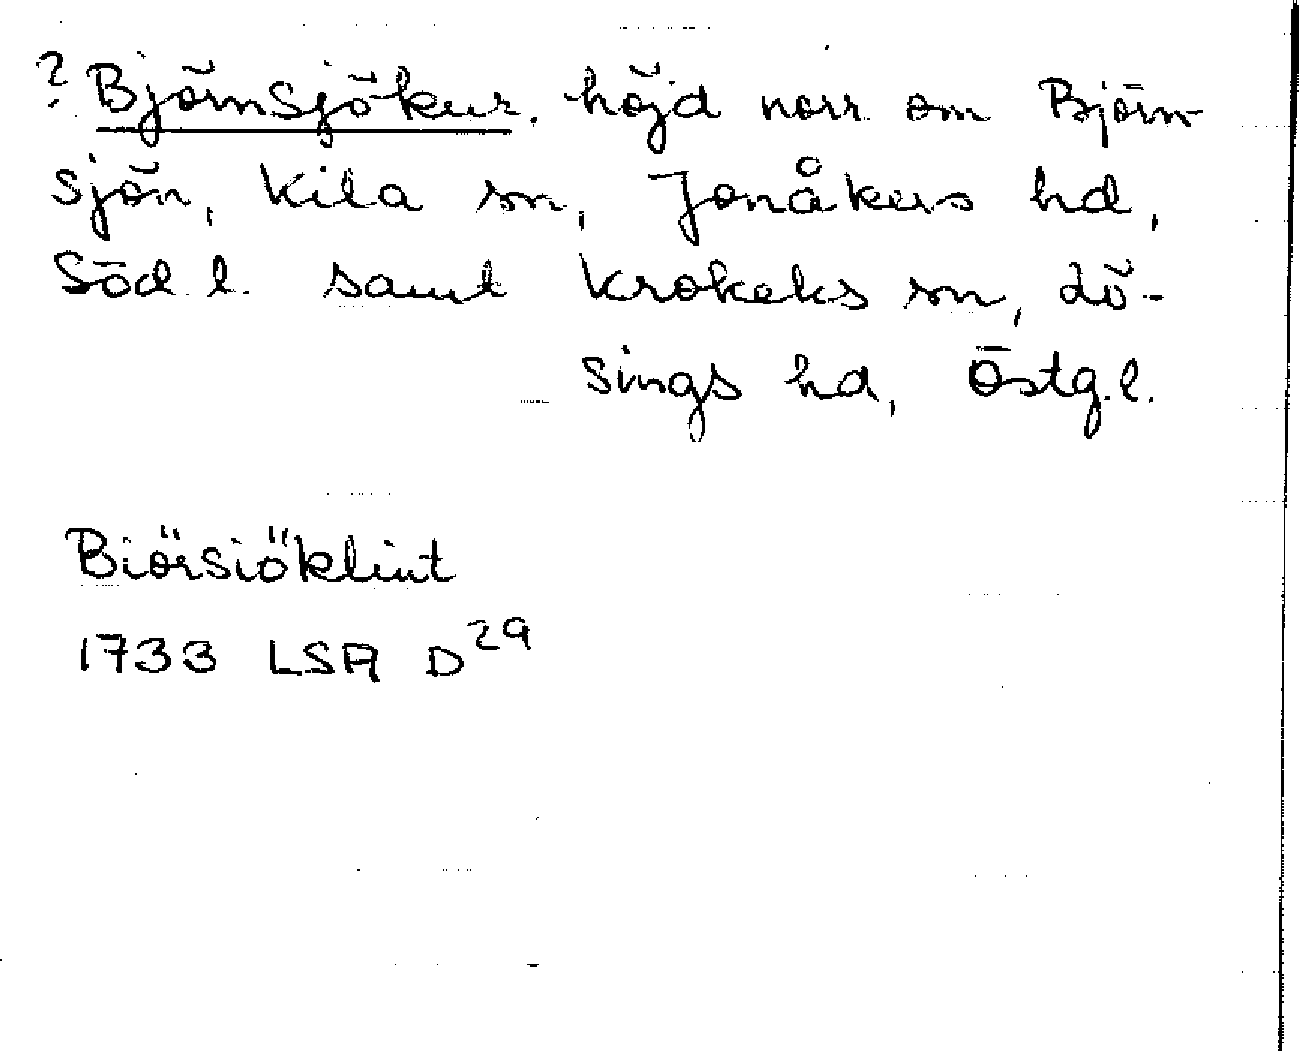 ? Björnsjökur. höjd norr om Björn-
sjön, Kila sn, Jonåkers hd,
Söd. l. samt Krokeks sn, Lö-
sings hd, Östg. l.
Biörsiöklint
1733 LSA D 29